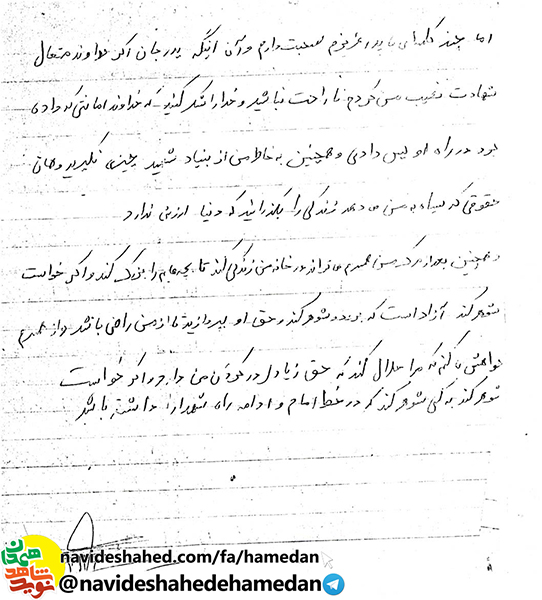 اما چند کلمه‌ای با پدر عزیزم صحبت دارم و آن اینکه پدر جان اگر خداوند متعال
شهادت نصیب من کرد ناراحت نباشید و خدا را شکر کنید که خداوند امانتی که دادی
بود در راه او پس دادی و همچنین به خاطر من از بنیاد شهید چیزی نگیرید و همان
حقوقی که سپاه به من می دهد زندگی را بگذرانید که دنیا ارزش ندارد
و همچنین بعد از مرگ من همسرم می تواند در خانه من زندگی کند تا بچه هایم را بزرگ کند و اگر خواست
شوهر کند آزاد است که برود و شوهر کند و حق او بپردازید تا از من راضی باشد و از همسرم
خواهش می کنم که مرا حلال کند که حق زیادی در گردن من دارد و اگر خواست
شوهر کند به کسی شوهر کند که در خط امام و ادامه راه شهدا را داشته باشد
navideshahed.com/fa/hamedan
@navideshahedehamedan
نوید شاهد همدان